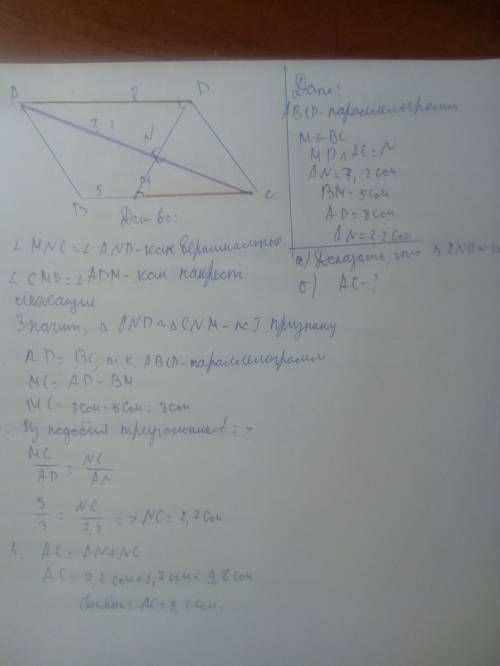 A 8 D
7,2
N
B 5 M C
Дано:
ABCD - параллелограмм
M ∈ BC
MD ∩ AC = N
AN = 7,2 см
BM = 5 см
AD = 8 см
AN = 7,2 см
а) Доказать, что △ AND ~
б) AC - ?
Док-во:
∠ MNC = ∠ AND - как вертикальные
∠ CMD = ∠ ADM - как накрест
лежащие
Значит, △ AND ~ △ CNM - по I признаку
AD = BC, т.к. ABCD - параллелограмм
MC = AD - BM
MC = 8 см - 5 см = 3 см
Из подобия треугольников =>
MC/AD = NC/AN
NC/7,2 => NC = 2,7 см
4. AC = AN + NC
AC = 7,2 см + 2,7 см = 9,9 см
Ответ: AC = 9,9 см.